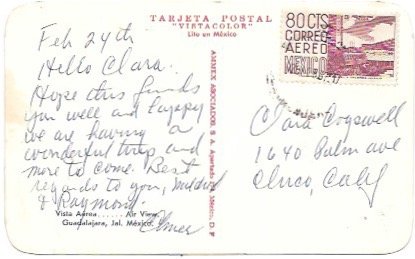 TARJETA POSTAL
"VISTACOLOR"
Lito en México
Feb 24th
Hello Clara.
Hope this finds
you well and happy
we are having a
wonderful trip and
more to come. Best
regards to you, Mildred
& Raymond.
Elmer
Vista Aérea...... Air View
Guadalajara, Jal. México.
AMMEX ASOCIADOS, S. A. Apartado México, D F
80 CTS
CORREO
AEREO
MEXICO
Clara Cogswell
1640 Palm ave
Chico, Calif